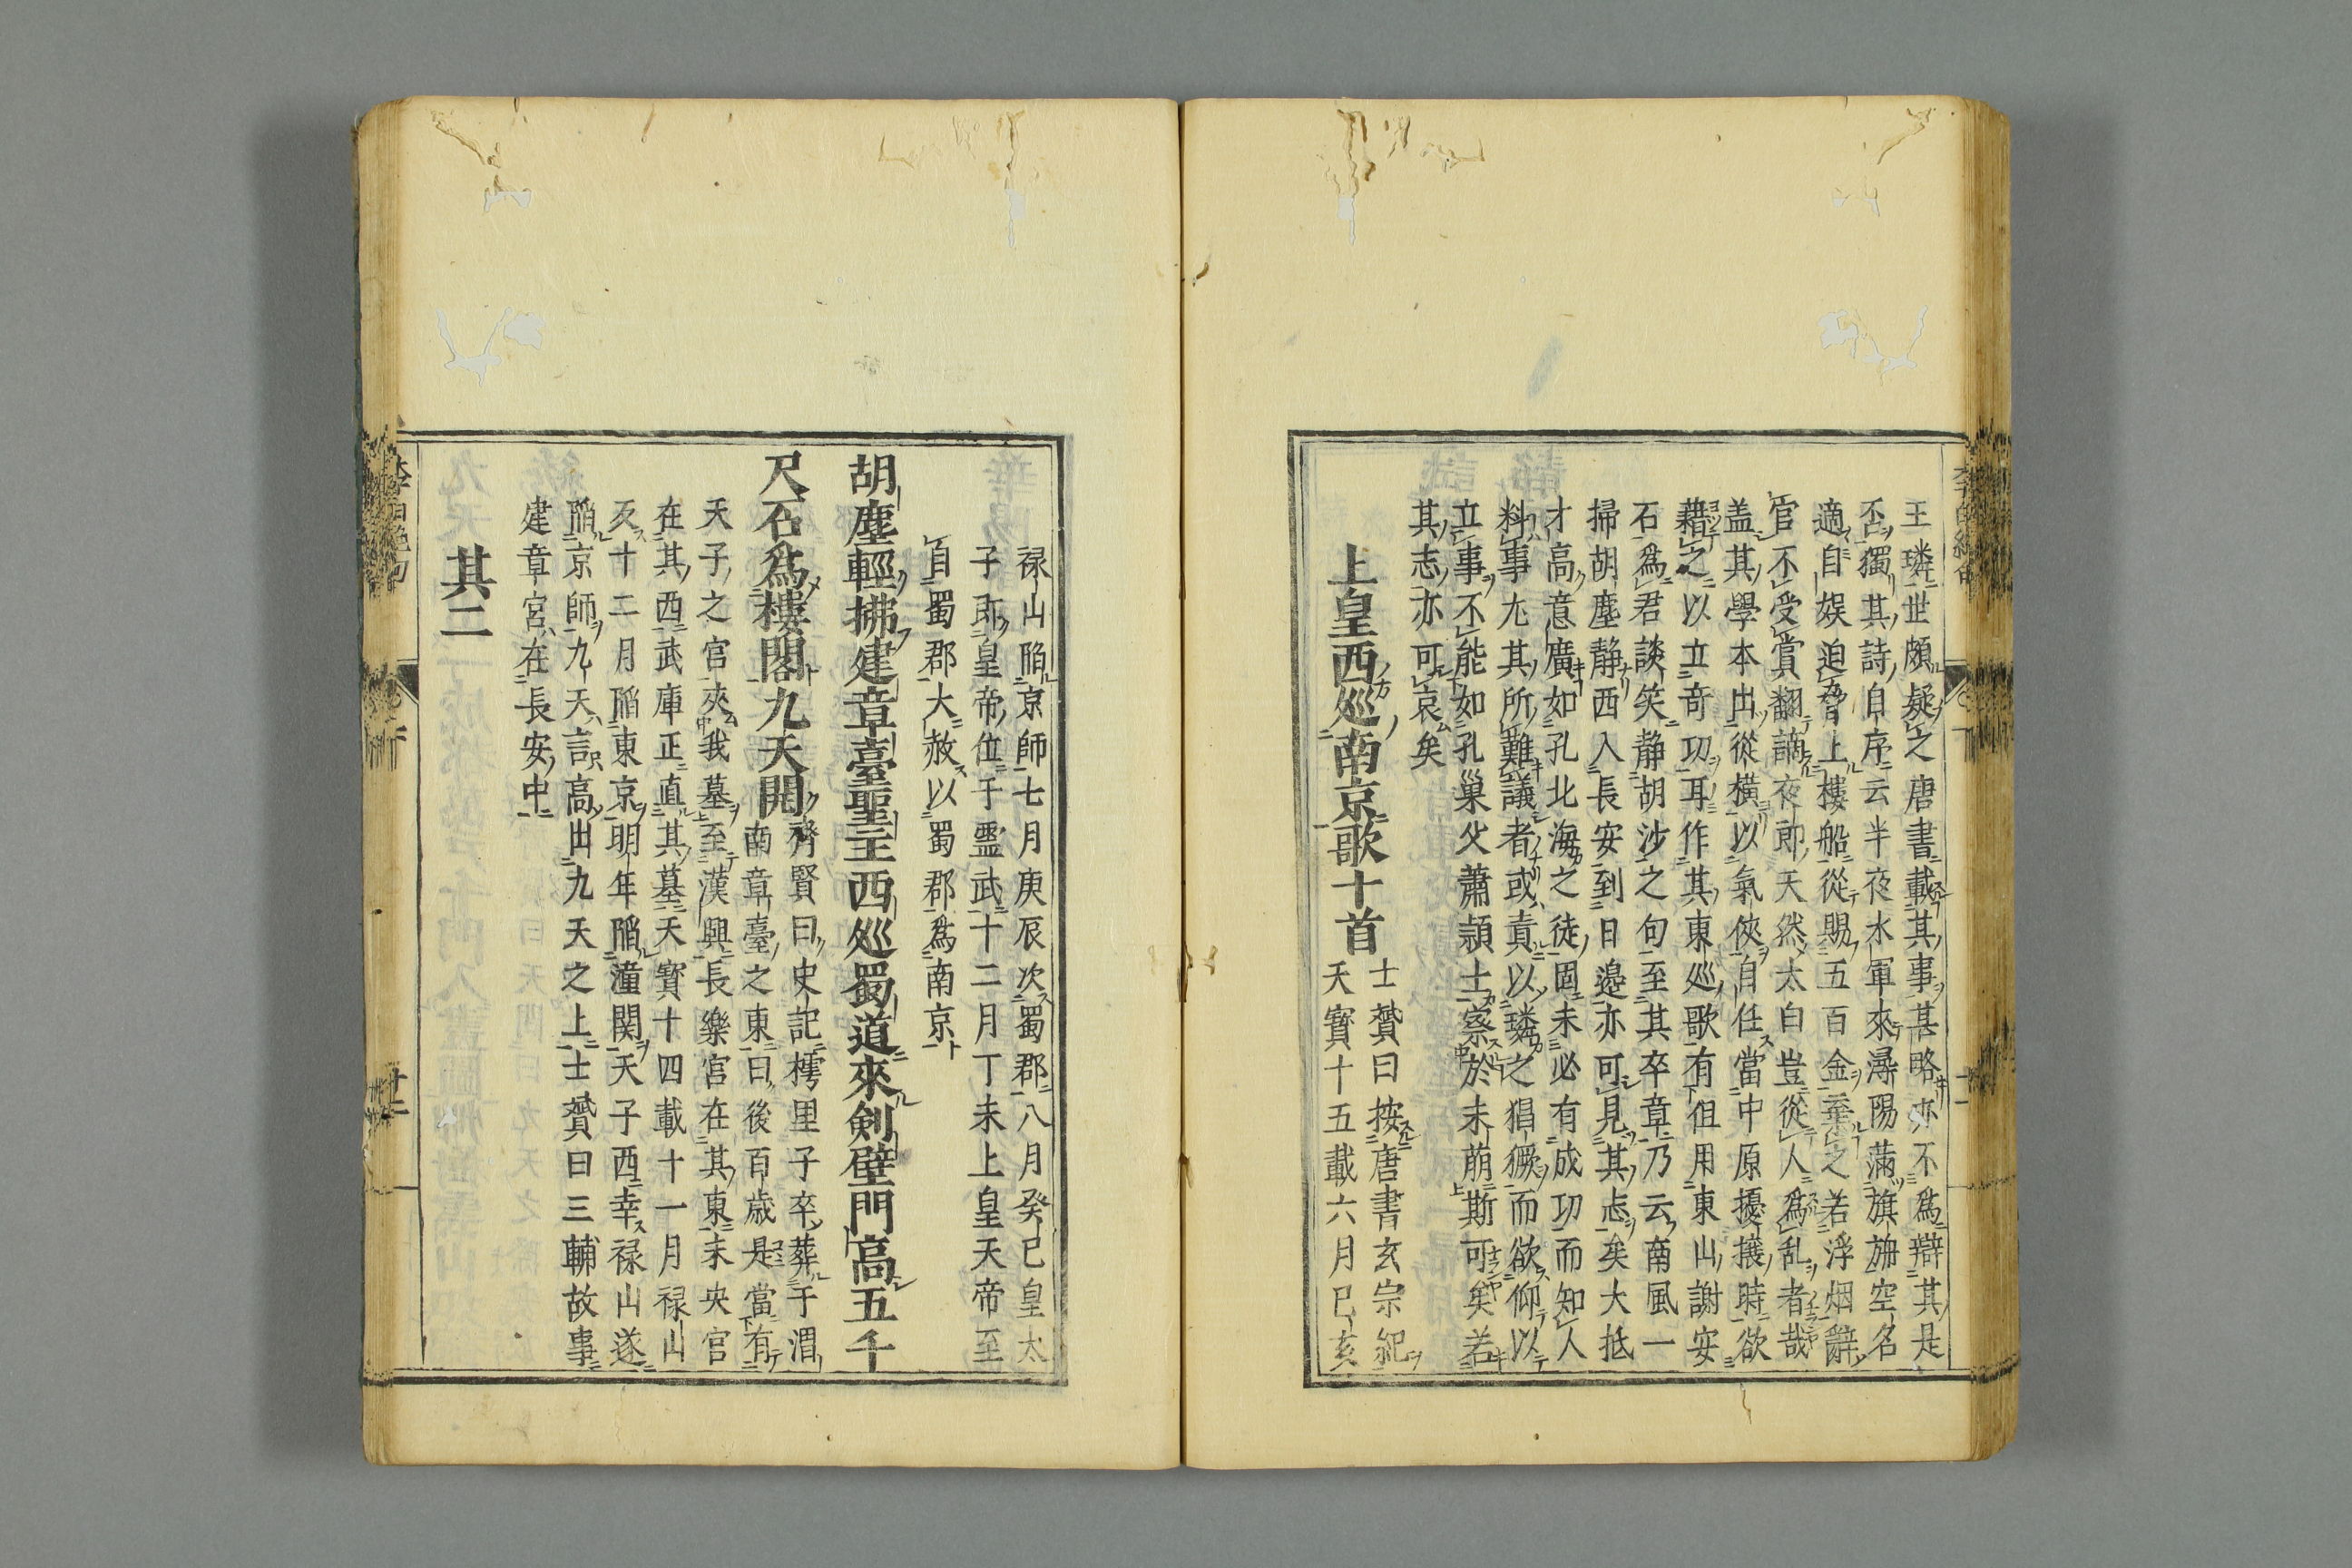 王璘世頗疑之唐書載其事甚略亦不爲辯其是
否獨其詩自序云半夜水軍來潯陽滿旗旃空名
適自娯迫脅上樓船從賜五百金棄之若浮烟辭
官不受賞翻謫夜郎天然太白豈從人爲乱者哉
盖其學本出從横以氣俠自任當中原擾攘時欲
藉之以立奇功耳作其東巡歌有但用東山謝安
石爲君談笑静胡沙之句至其卒章乃云南風一
掃胡塵静西入長安到日邉亦可見其志矣大抵
才高意廣如孔北海之徒固未必有成功而知人
料事尤其所難議者或責以璘之猖獗而欲仰以
立事不能如孔巢父蕭頴士察於未萠斯可矣若
其志亦可哀矣
上皇西巡南京歌十首
士贇曰按唐書玄宗紀
天寳十五載六月已亥
禄山陥京師七月庚辰次蜀郡八月癸已皇太
子即皇帝位于霊武十二月丁未上皇天帝至
自蜀郡大赦以蜀郡爲南京
胡塵輕拂建章臺聖主西巡蜀道來劍壁門高五千
尺石爲樓閣九天開
齊賢曰史記樗里子卒葬于渭
南章臺之東曰後百歳是當有
天子之官夾我墓至漢興長樂宮在其東未央官
在其西武庫正直其墓天寳十四載十一月禄山
反十二月陥東京明年陥潼関天子西幸禄山遂
陥京師九天言高出九天之上士贇曰三輔故事
建章宮在長安中
其二